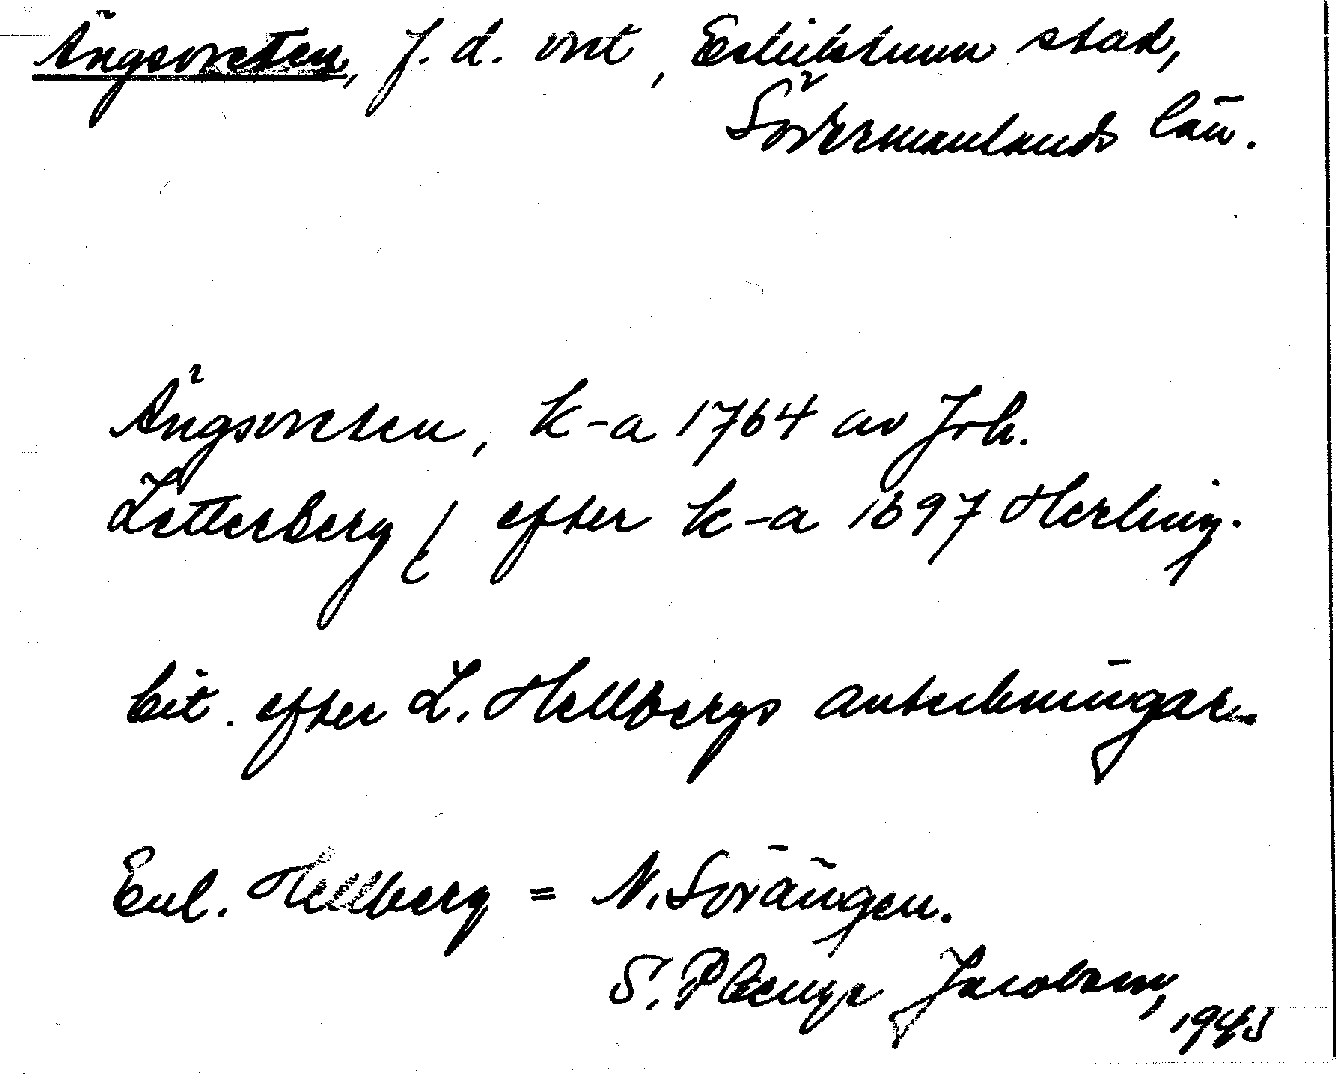 Ängsvreten, f.d. ort, Eskilstuna stad,
Södermanlands län.
Ängsvreten, k-a 1764 av Joh.
Zetterberg / efter k-a 1697 Herling.
Cit. efter L. Hellbergs anteckningar.
Enl. Hellberg = N. Sörängen.
S. Plenge Jacobson, 1945